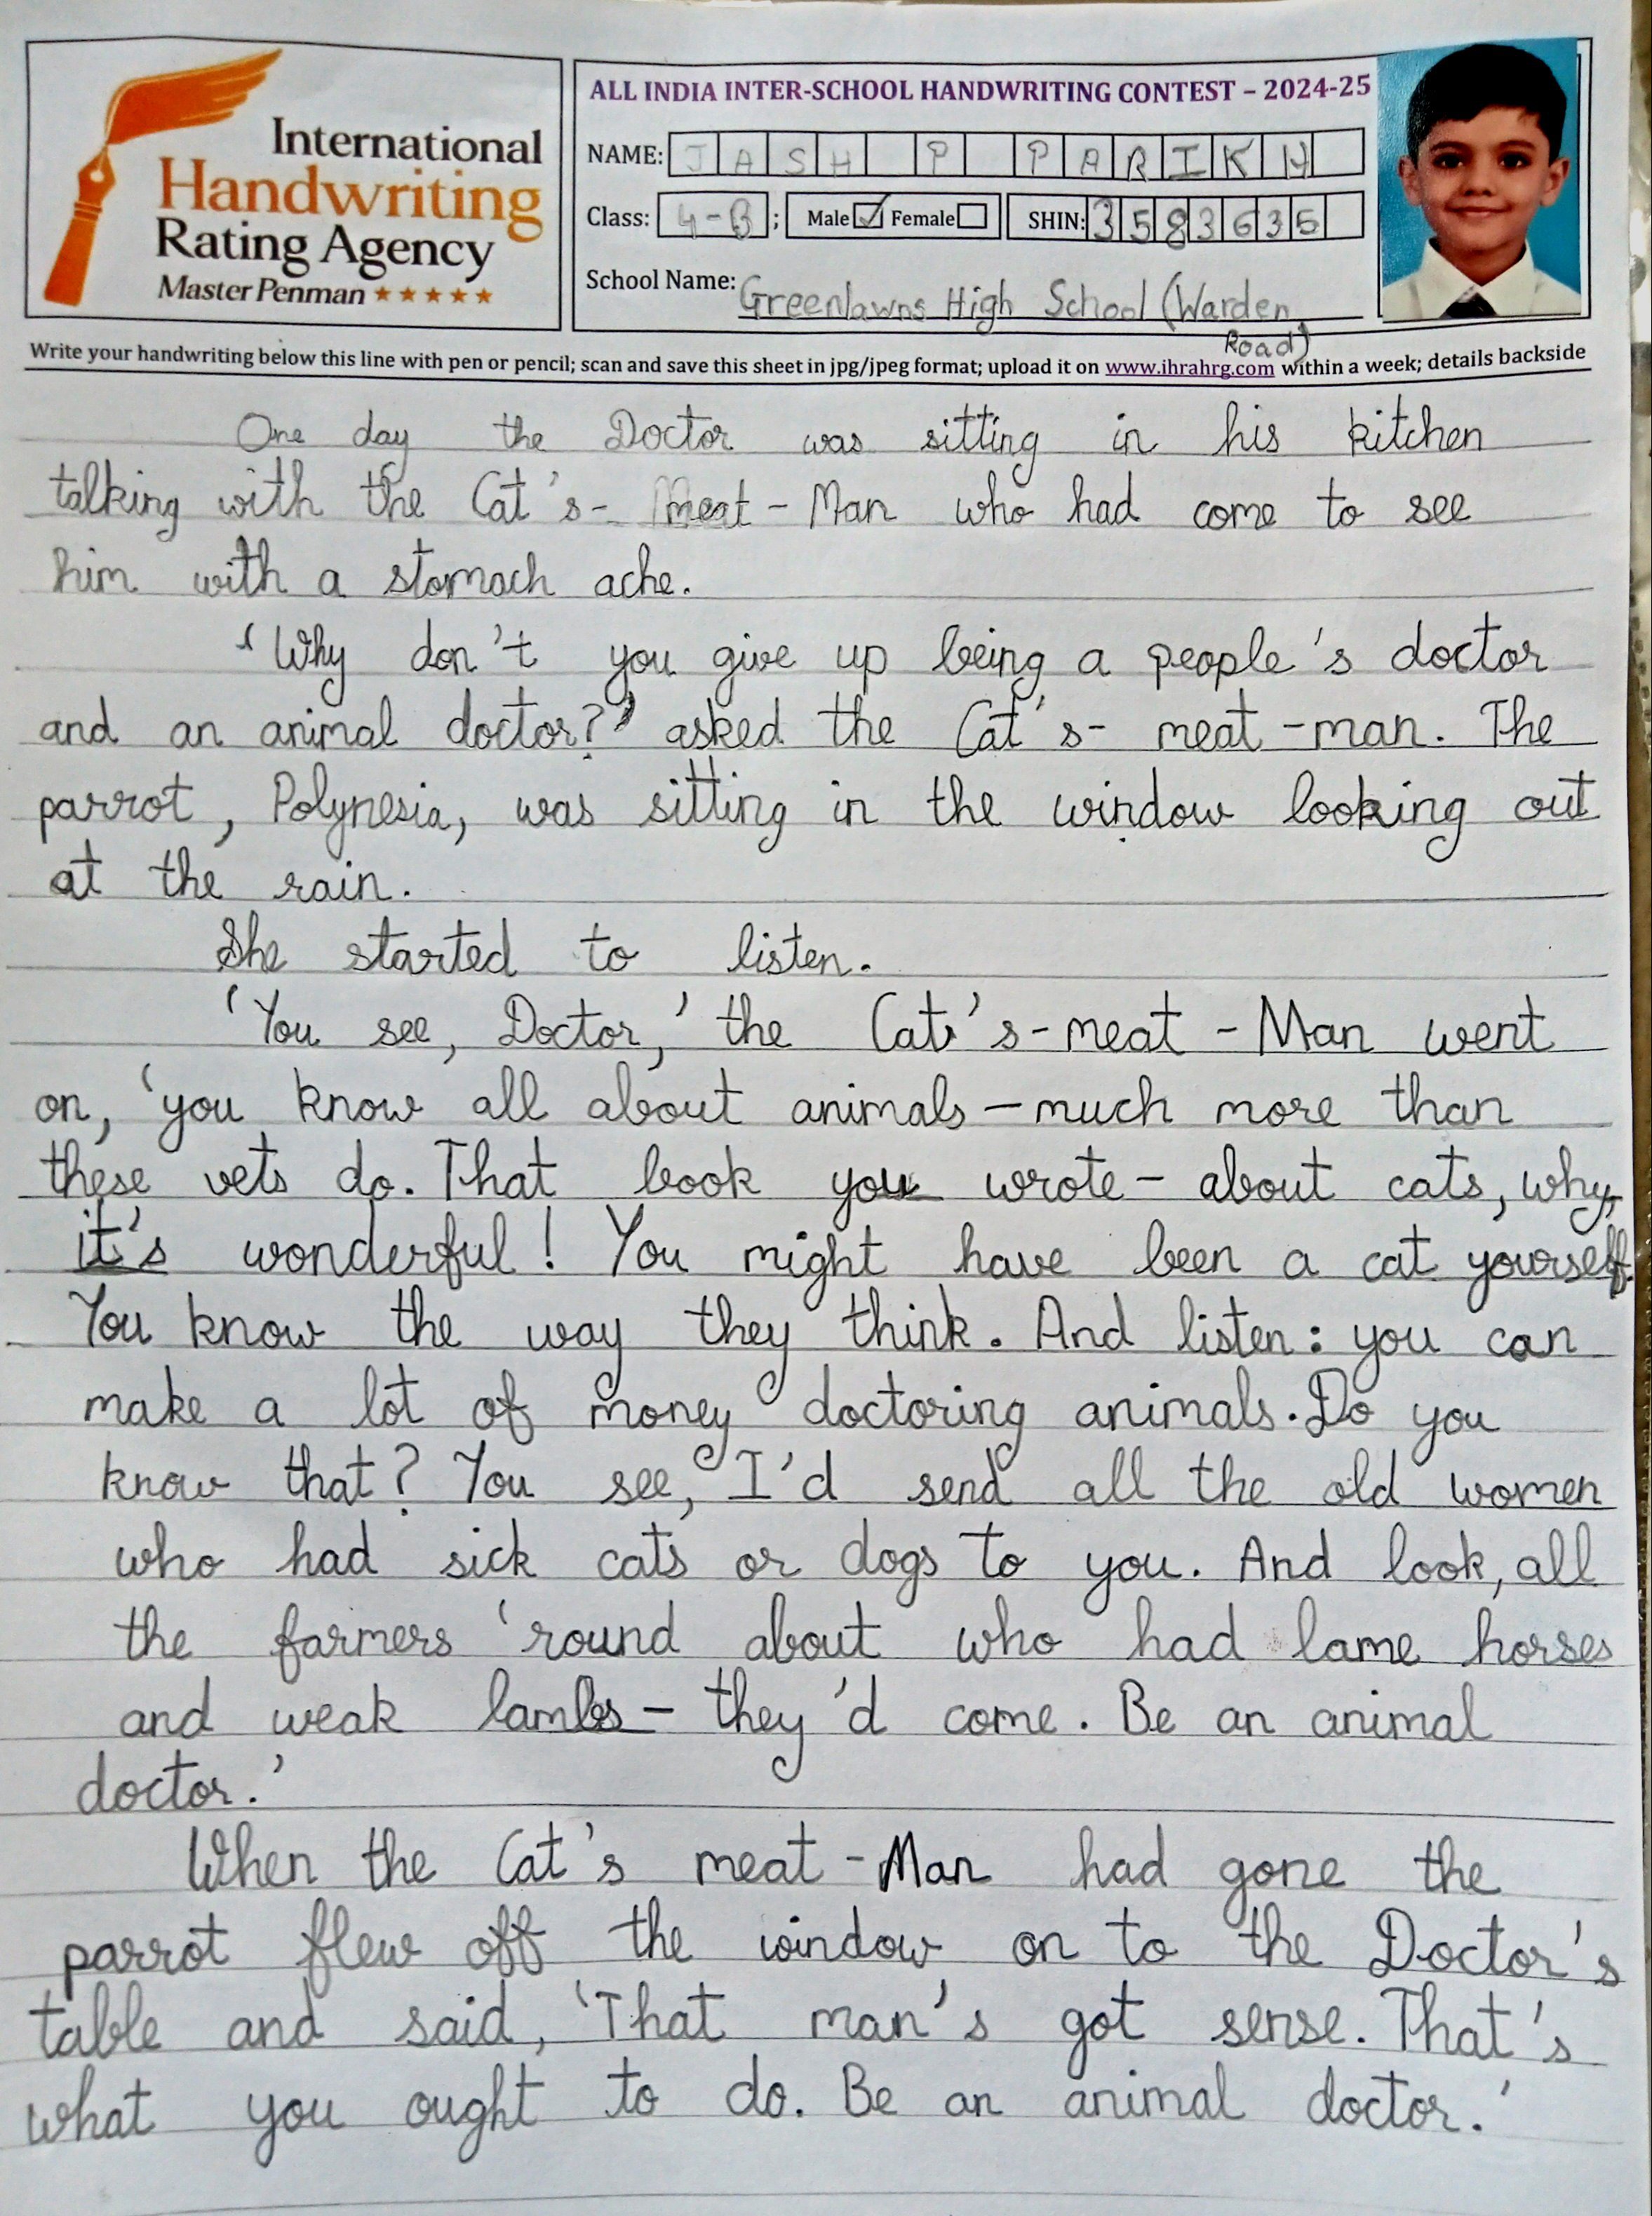 International
Handwriting
Rating Agency
Master Penman ★★★★★
ALL INDIA INTER-SCHOOL HANDWRITING CONTEST – 2024-25
NAME: JASH P PARIKH
Class: 4-B ; Male ☑ Female ☐ SHIN: 3583635
School Name: Greenlawns High School (Warden
Road)
Write your handwriting below this line with pen or pencil; scan and save this sheet in jpg/jpeg format; upload it on www.ihrahrg.com within a week; details backside
One day the Doctor was sitting in his kitchen
talking with the Cat's- Meat - Man who had come to see
him with a stomach ache.
'Why don't you give up being a people's doctor
and an animal doctor?' asked the Cat's- meat -man. The
parrot, Polynesia, was sitting in the window looking out
at the rain.
She started to listen.
'You see, Doctor,' the Cat's-meat - Man went
on, 'you know all about animals – much more than
these vets do. That book you wrote – about cats, why,
it's wonderful! You might have been a cat yourself.
You know the way they think. And listen: you can
make a lot of money doctoring animals. Do you
know that? You see, I'd send all the old women
who had sick cats or dogs to you. And look, all
the farmers 'round about who had lame horses
and weak lambs – they'd come. Be an animal
doctor.'
When the Cat's meat -Man had gone the
parrot flew off the window on to the Doctor's
table and said, 'That man's got sense. That's
what you ought to do. Be an animal doctor.'